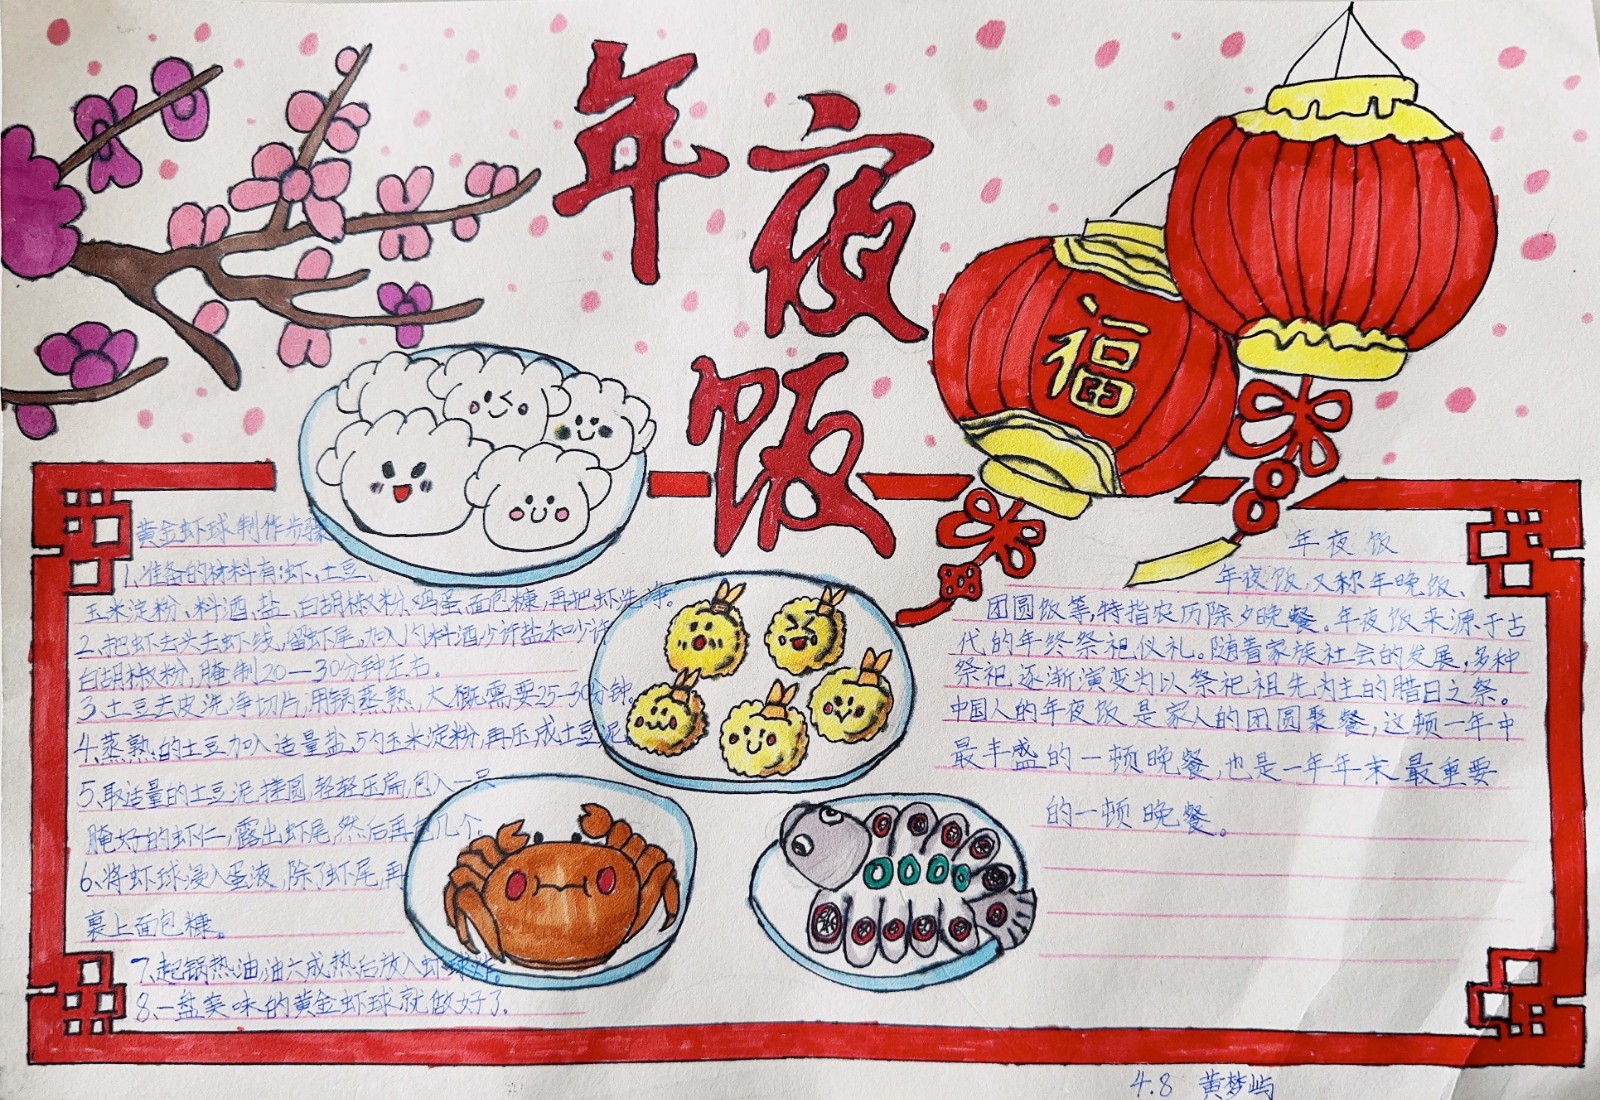 年夜饭
福
黄金虾球制作步骤
1、准备的材料有:虾、土豆、
玉米淀粉、料酒、盐、白胡椒粉、鸡蛋、面包糠,再把虾洗净。
2、把虾去头去虾线,留虾尾,加入1勺料酒少许盐和少许
白胡椒粉,腌制20—30分钟左右。
3、土豆去皮洗净切片,用锅蒸熟,大概需要25-30分钟。
4、蒸熟的土豆加入适量盐,5勺玉米淀粉,再压成土豆泥。
5、取适量的土豆泥搓圆,轻轻压扁,包入一只
腌好的虾仁,露出虾尾,然后再包几个
6、将虾球浸入蛋液,除了虾尾,再
裹上面包糠。
7、起锅热油,油六成热后放入虾球炸。
8、一盘美味的黄金虾球就做好了。
年夜饭
年夜饭,又称年晚饭、
团圆饭等,特指农历除夕晚餐。年夜饭来源于古
代的年终祭祀仪礼。随着家族社会的发展,多种
祭祀逐渐演变为以祭祀祖先为主的腊日之祭。
中国人的年夜饭是家人的团圆聚餐,这顿一年中
最丰盛的一顿晚餐,也是一年年末最重要
的一顿晚餐。
4.8 黄梦屿